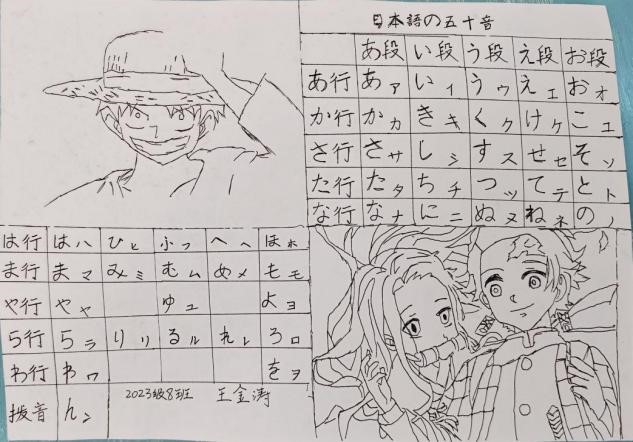 日本語の五十音
あ段 い段 う段 え段 お段
あ行 あァ いィ うゥ えェ おォ
か行 かカ きキ くク けケ こコ
さ行 さサ しシ すス せセ そソ
た行 たタ ちチ つッ てテ とト
な行 なナ にニ ぬヌ ねネ のノ
は行 はハ ひヒ ふフ へヘ ほホ
ま行 まマ みミ むム めメ もモ
や行 やヤ ゆユ よヨ
ら行 らラ りリ るル れレ ろロ
わ行 わワ をヲ
拨音 んン
2023级8班 王金涛